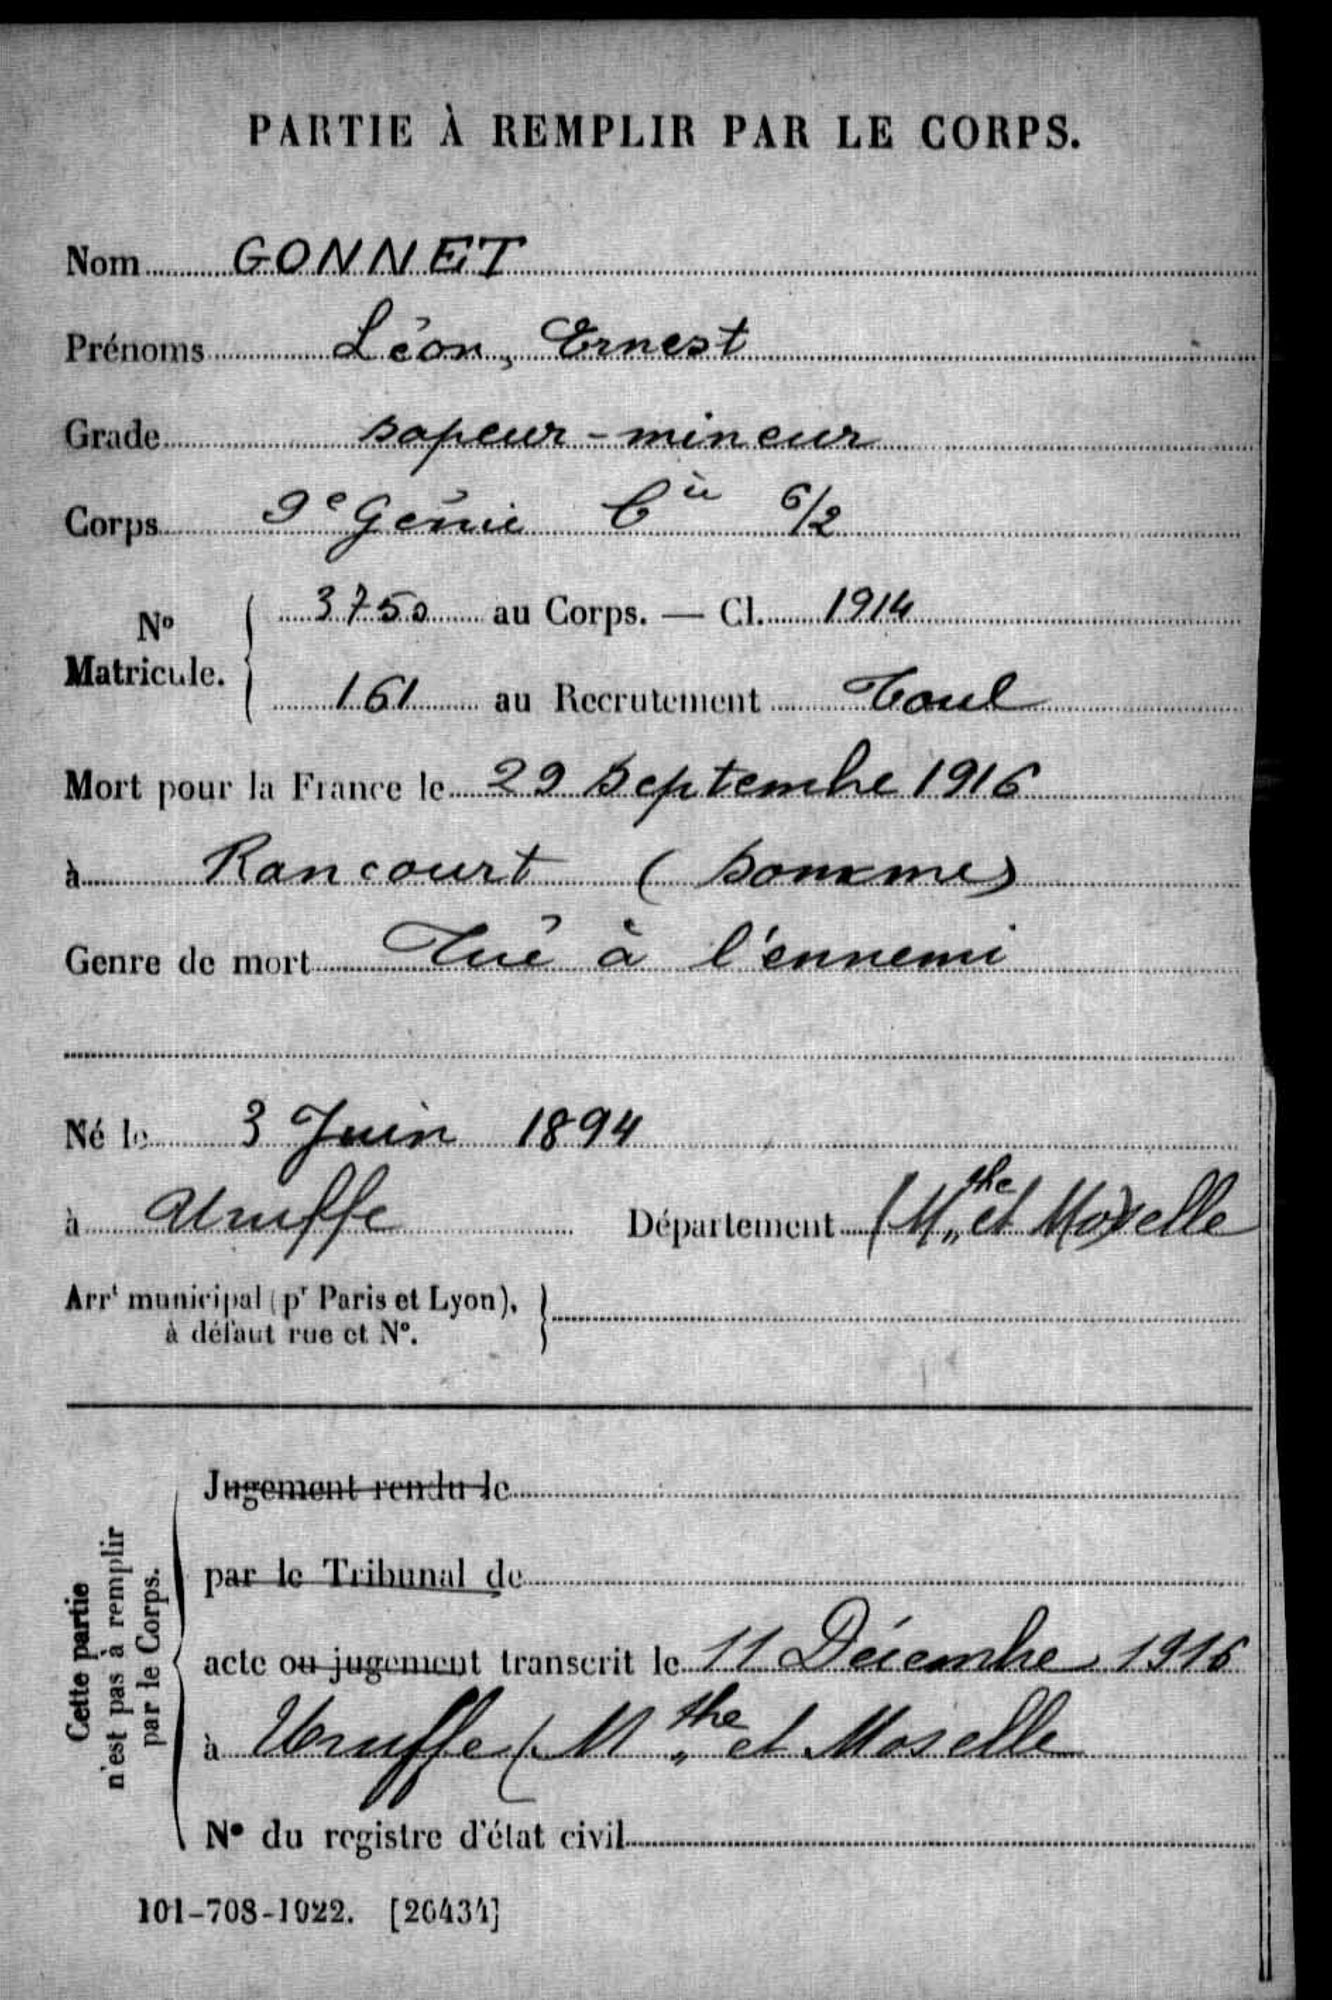 PARTIE À REMPLIR PAR LE CORPS.
Nom GONNET
Prénoms Léon, Ernest
Grade sapeur-mineur
Corps 9e Génie Cie 6/2
No Matricule. 3750 au Corps. — Cl. 1914
161 au Recrutement Toul
Mort pour la France le 29 septembre 1916
à Rancourt (Somme)
Genre de mort Tué à l'ennemi
Né le 3 Juin 1894
à Uruffe Département (Mthe et Moselle
Arrt municipal (pr Paris et Lyon),
à défaut rue et No.
Cette partie
n'est pas à remplir
par le Corps.
Jugement rendu le
par le Tribunal de
acte ou jugement transcrit le 11 Décembre 1916
à Uruffe (Mthe et Moselle
No du registre d'état civil
101-708-1922. [26434]